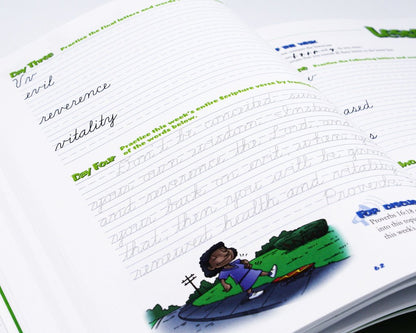 Day Three Practice the following letters and words
Vv
evil
reverence
vitality
Day Four Practice this week's entire Scripture verse by
of the words below.
Don't be conceited, sure
your own wisdom. Instead,
and reverence the Lord and
your back on evil when
that, then you will be given
renewed health and vitality
Proverbs
Less
Practice the following letters and
ased.
s
For Discus
Proverbs 16:18
into this topic
this week's
62